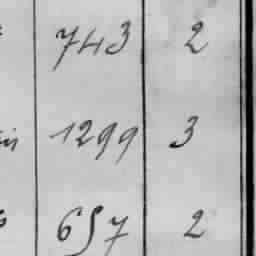 743 2
1299 3
657 2